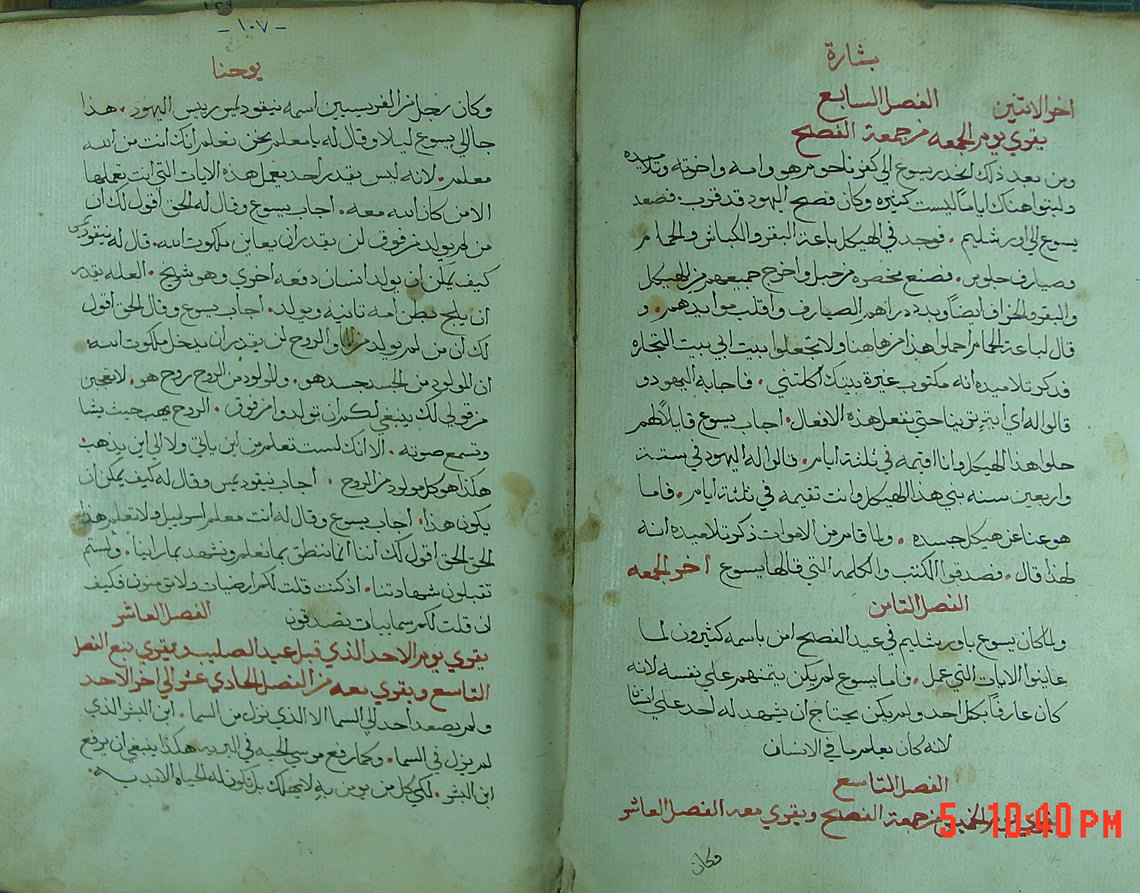 بشارة
اخر الاثنين
الفصل السابع
يقري يوم الجمعه من جمعة الفصح
ومن بعد ذلك انحدر يسوع الي كفرناحوم هو وامه واخوته وتلاميده
ولبتوا هناك اياماً ليست كثيره وكان فصح اليهود قد قرب. فصعد
يسوع الي اورشليم. فوجد في الهيكل باعة البقر والكباش والحمام
وصيارف جلوس. فصنع مخصره من حبل واخرج جميعهم من الهيكل
والبقر والخراف ايضاً وبدد دراهم الصيارف واقلب موايدهم. و
قال لباعة الحمام احملوا هذا من هاهنا ولا تجعلوا بيت ابي بيت التجاره
فدكر تلاميده انه مكتوب غيرة بيتك اكلتني. فاجابه اليهود و
قالوا له اي اية ترينا حتي تفعل هذه الافعال. اجاب يسوع قايلاً لهم
حلوا هذا الهيكل وانا اقيمه في ثلثة ايام. قالوا له اليهود في ستة
واربعين سنه بني هذا الهيكل وانت تقيمه في ثلثة ايام. فاما
هو عنا عن هيكل جسده. ولما قام من الاموات دكر تلاميده انه
لهذا قال. فصدقوا الكتب والكلمه التي قالها يسوع اخر الجمعه
الفصل الثامن
ولما كان يسوع باورشليم في عيد الفصح امن باسمه كثيرون لما
عاينوا الايات التي عمل. فاما يسوع لم يكن يتمنهم علي نفسه لانه
كان عارفاً بكل احد ولم يكن يحتاج ان يشهد له احد علي انسان
لانه كان يعلم ما في الانسان
الفصل التاسع
من جمعة الفصح ويقري معه الفصل العاشر
5 10:40 PM
وكان
- ١٠٧ -
يوحنا
وكان رجل من الفريسيين اسمه نيقوديمس رييس اليهود. هذا
جا الي يسوع ليلا وقال له يا معلم نحن نعلم انك انت من الله
معلم. لانه ليس يقدر احد يعمل هذه الايات التي انت تعملها
الا من كان الله معه. اجاب يسوع وقال له الحق اقول لك ان
من لم يولد من فوق لن يقدر ان يعاين ملكوت الله. قال له نيقوديمس
كيف يمكن ان يولد انسان دفعه اخري وهو شيخ. العله يقدر
ان يلج بطن امه تانيه ويولد. اجاب يسوع وقال الحق اقول
لك ان من لم يولد من الما والروح لن يقدر ان يدخل ملكوت الله
ان المولود من الجسد جسد هو. والمولود من الروح روح هو. لا تعجبن
من قولي لك ينبغي لكم ان تولدوا من فوق. الروح يهب حيث يشا
وتسمع صوته. الا انك لست تعلم من اين ياتي ولا الي اين يذهب
هكذا هو كل مولود من الروح. اجاب نيقوديمس وقال له كيف يمكن ان
يكون هذا. اجاب يسوع وقال له انت معلم اسراييل ولا تعلم هذا
الحق الحق اقول لك اننا انما ننطق بما نعلم ونشهد بما راينا. ولستم
تقبلون شهادتنا. اذ كنت قلت لكم ارضيات ولا تومنون فكيف
ان قلت لكم سماييات تصدقون الفصل العاشر
يقري يوم الاحد الذي قبل عيد الصليب ويقري تبع الفصل
التاسع ويقري معه من الفصل الحادي عشر الي اخر الاحد
ولم يصعد احد الي السما الا الذي نزل من السما. ابن البشر الذي
لم يزل في السما. وكما رفع موسي الحيه في البريه هكذا ينبغي ان يرفع
ابن البشر. لكي كل من يومن به لا يهلك بل تكون له الحياة الابديه.